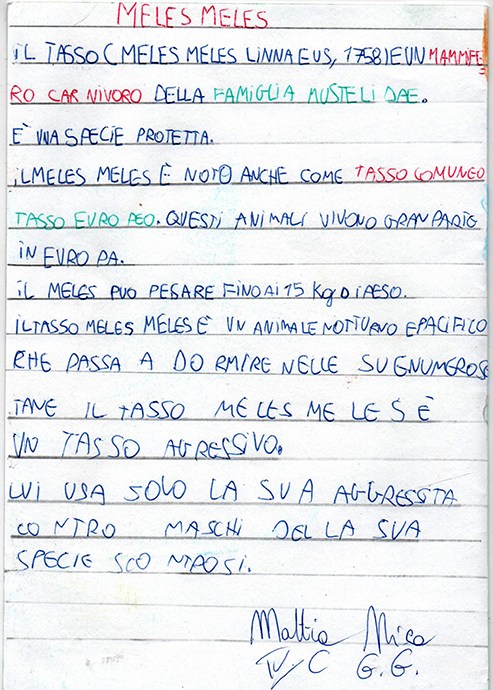 MELES MELES
IL TASSO (MELES MELES LINNAEUS, 1758) E UN MAMMIFE
RO CARNIVORO DELLA FAMIGLIA MUSTELIDAE.
È UNA SPECIE PROTETTA.
IL MELES MELES È NOTO ANCHE COME TASSO COMUNE O
TASSO EUROPEO. QUESTI ANIMALI VIVONO GRAN PARTE
IN EUROPA.
IL MELES PUO PESARE FINO AI 15 Kg DI PESO.
IL TASSO MELES MELES È UN ANIMALE NOTTURNO E PACIFICO
CHE PASSA A DORMIRE NELLE SUE NUMEROSE
TANE IL TASSO MELES MELES È
UN TASSO AGRESSIVO.
LUI USA SOLO LA SUA AGGRESSITA
CONTRO MASCHI DELLA SUA
SPECIE SCONTROSI.
Mattia Mica
IV/C G.G.